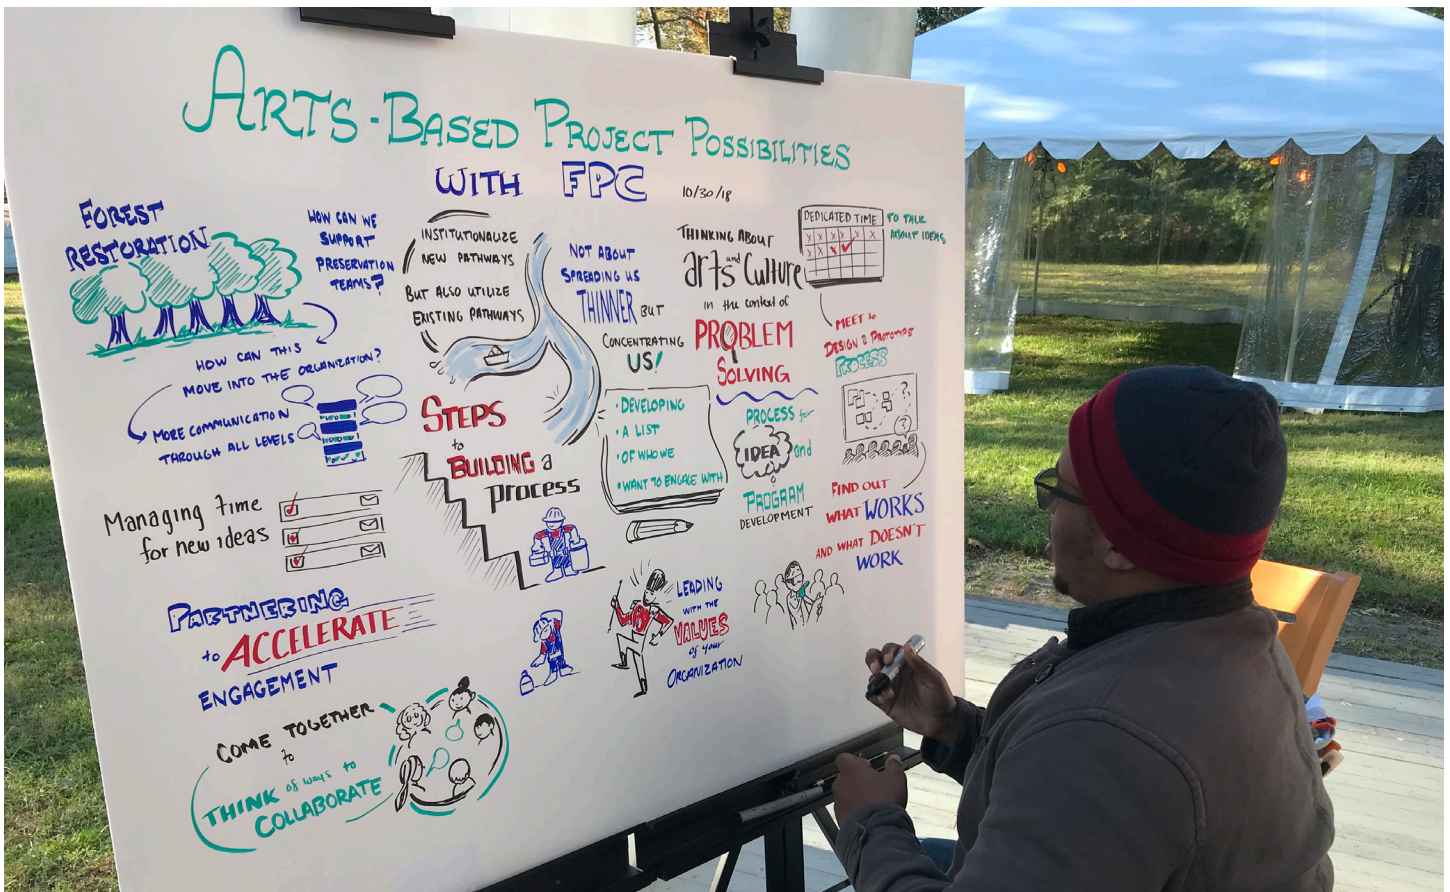 ARTS-BASED PROJECT POSSIBILITIES
WITH FPC
10/30/18
FOREST
RESTORATION
HOW CAN WE
SUPPORT
PRESERVATION
TEAMS?
HOW CAN THIS
MOVE INTO THE ORGANIZATION?
MORE COMMUNICATION
THROUGH ALL LEVELS
Managing time
for new ideas
PARTNERING
to ACCELERATE
ENGAGEMENT
COME TOGETHER
to
THINK of ways to
COLLABORATE
INSTITUTIONALIZE
NEW PATHWAYS
BUT ALSO UTILIZE
EXISTING PATHWAYS
STEPS
to
BUILDING a
process
NOT ABOUT
SPREADING US
THINNER BUT
CONCENTRATING
US!
• DEVELOPING
• A LIST
• OF WHO WE
• WANT TO ENGAGE WITH
LEADING
WITH THE
VALUES
of your
ORGANIZATION
THINKING ABOUT
arts and Culture
in the context of
PROBLEM
SOLVING
PROCESS for
IDEA and
PROGRAM
DEVELOPMENT
DEDICATED TIME
X X X X X X
X X X
TO TALK
ABOUT IDEAS
MEET to
DESIGN & PROTOTYPE
PROCESS
?
?
FIND OUT
WHAT WORKS
AND WHAT DOESN'T
WORK